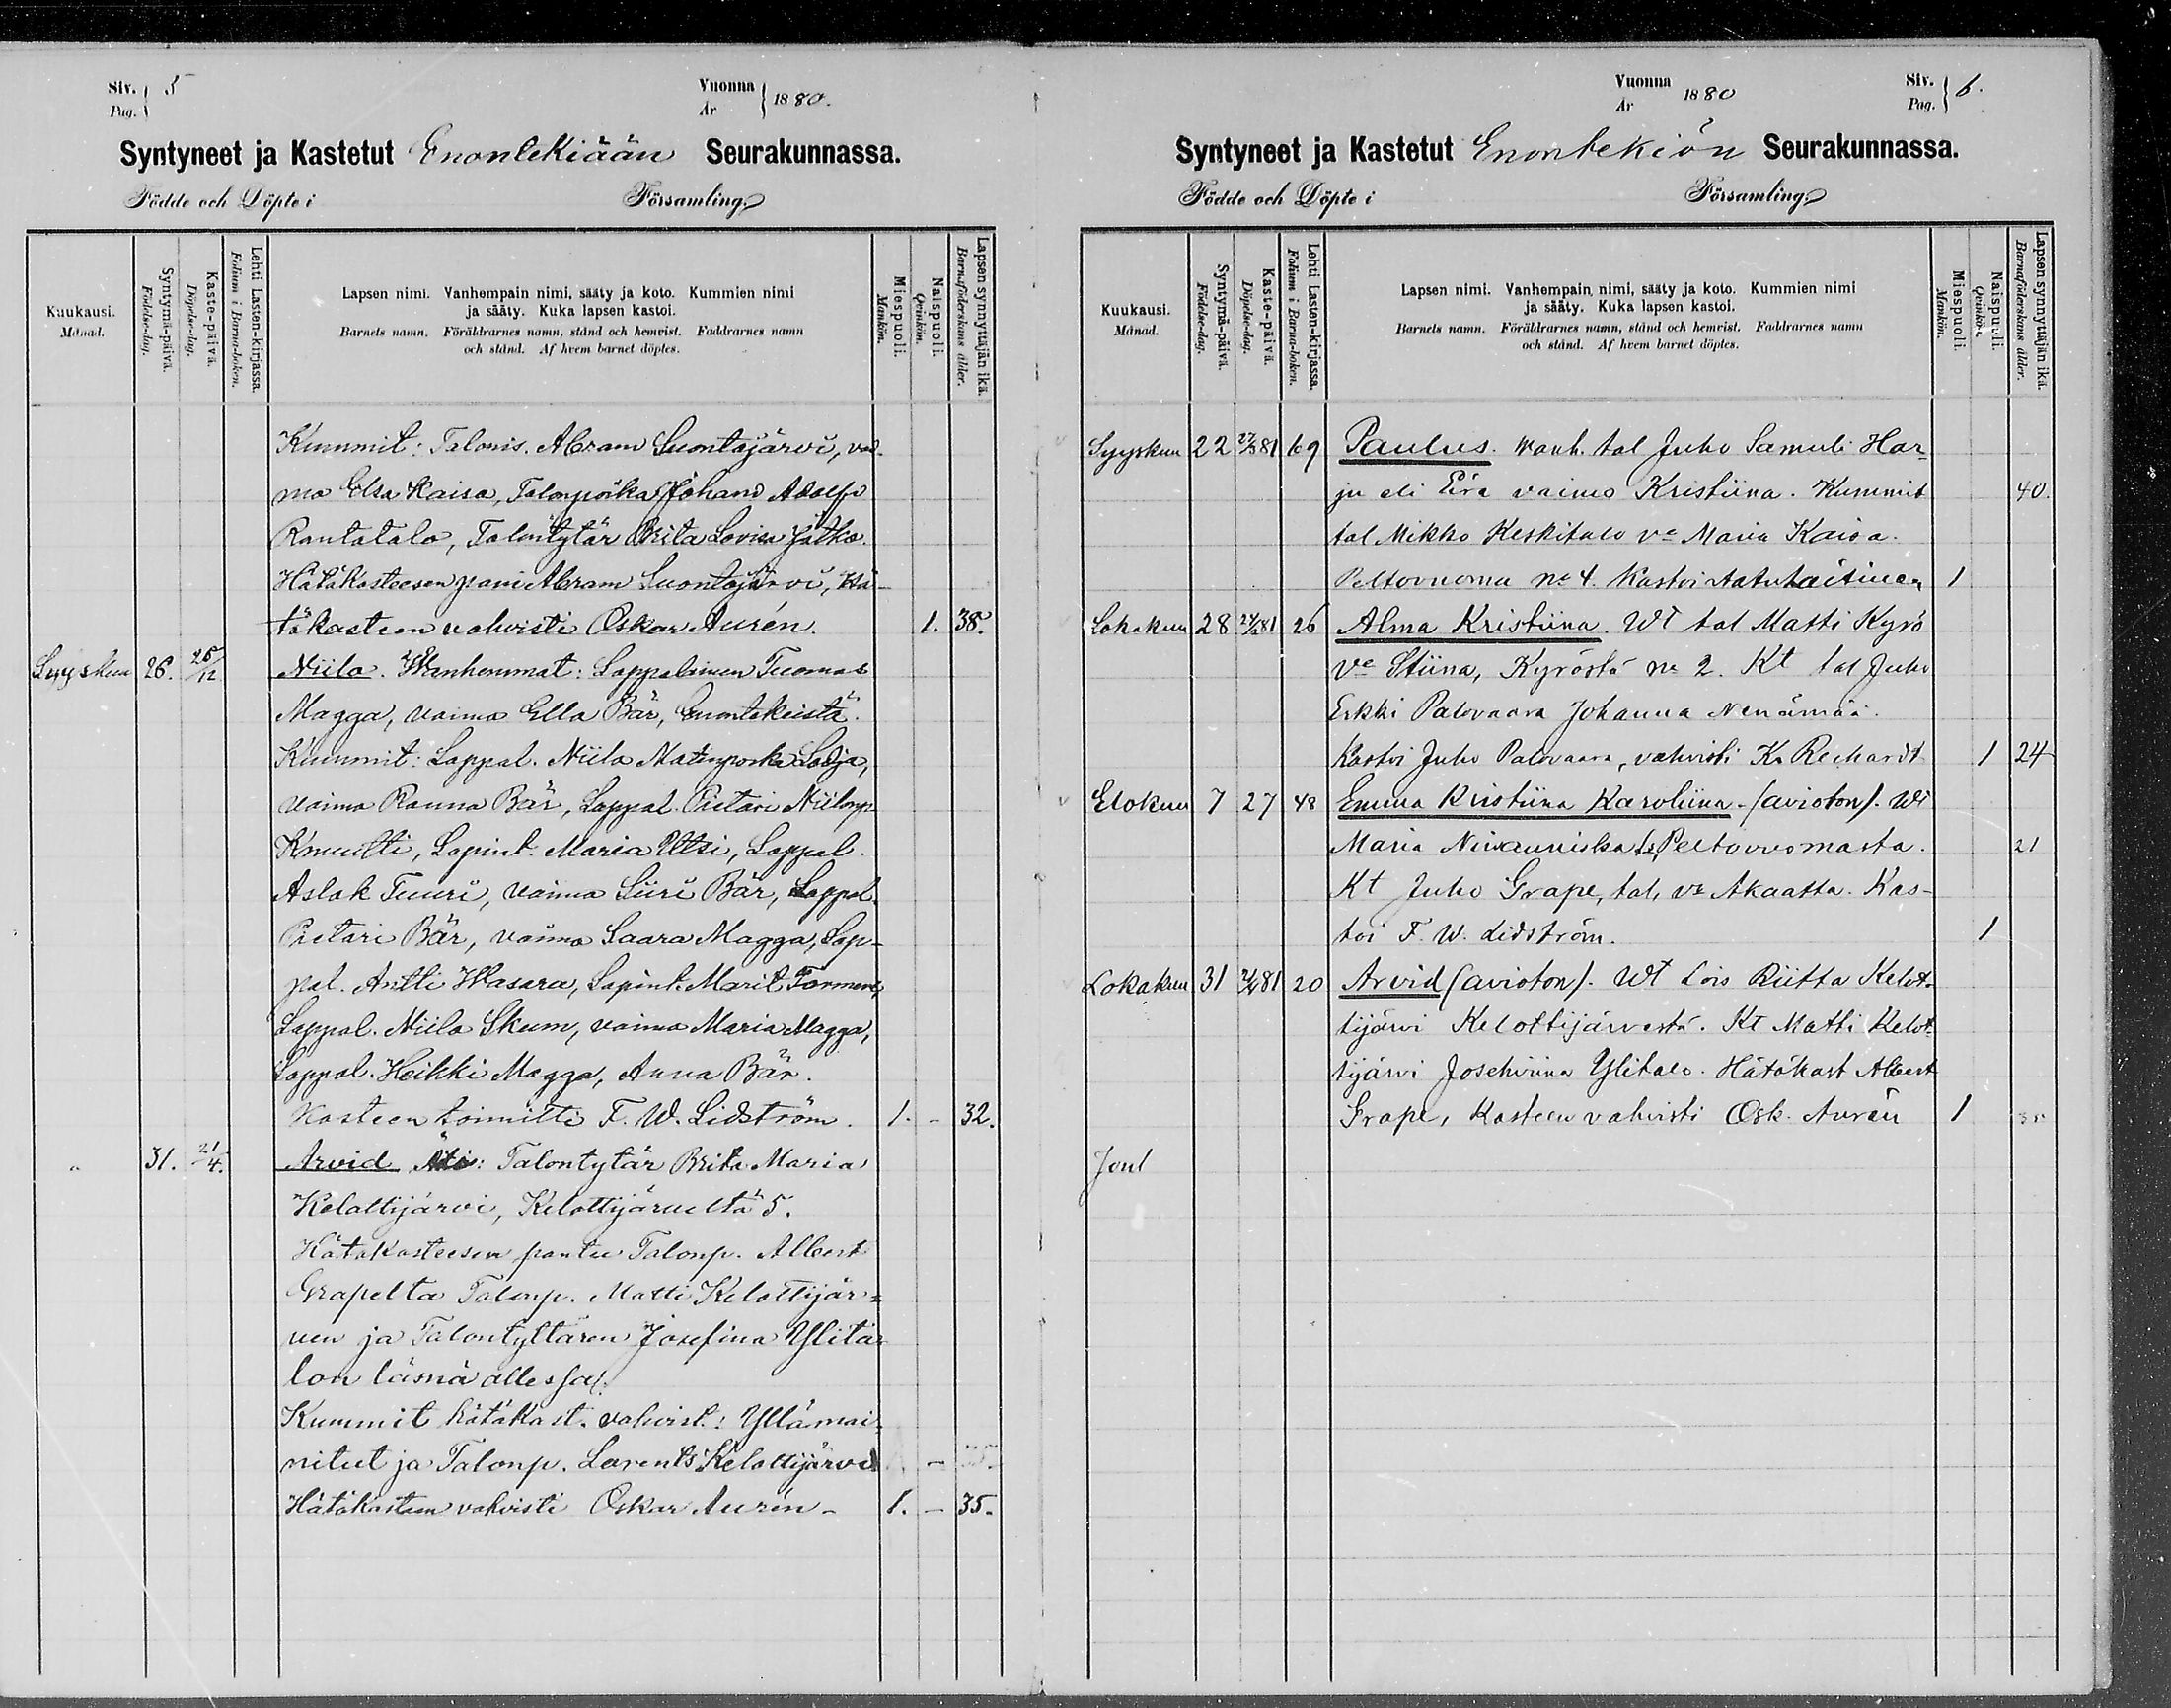 Siv. 5
Pag.
Vuonna
År 1880.
Syntyneet ja Kastetut Enontekiään Seurakunnassa.
Födde och Döpte i Församling.
Kuukausi.
Månad.
Syntymä-päivä.
Födelse-dag.
Kaste-päivä.
Döpelse-dag.
Lehti Lasten-kirjassa.
Folium i Barna-boken.
Lapsen nimi. Vanhempain nimi, sääty ja koto. Kummien nimi
ja sääty. Kuka lapsen kastoi.
Barnets namn. Föräldrarnes namn, stånd och hemvist. Faddrarnes namn
och stånd. Af hvem barnet döptes.
Miespuoli.
Mankön.
Naispuoli.
Qvinkön.
Lapsen synnyttäjän ikä.
Barnaföderskans ålder.
Kummit: Talonis. Abram Suontajärvi, vai-
mo Elsa Kaisa, Talonpoika Johano Adolf
Rantatalo, Talontytär Brita Lovisa Jatko.
Hätäkasteesen pani Abram Suontajärvi, Hä-
täkasteen vahvisti Oskar Aurén. 1. 38.
Syyskuu 26. 25/12 Niila. Wanhemmat: Lappalainen Tuomas
Magga, vaimo Ella Bär, Enontekiistä.
Kummit: Lappal. Niila Matinpoika Ladja,
vaimo Ranna Bär, Lappal. Pietari Niilonp.
Knuutti, Lapint. Maria Utsi, Lappal.
Aslak Tuuri, vaimo Siiri Bär, Lappal.
Pietari Bär, vaimo Saara Magga, Lap-
pal. Antti Wasara, Lapint. Marit Tormeni,
Lappal. Niila Skum, vaimo Maria Magga,
Lappal. Heikki Magga, Anna Bär.
Kasteen toimitti F. W. Lidström. 1. - 32.
" 31. 21/4. Arvid Äiti: Talontytär Brita Maria
Kelottijärvi, Kelottijärveltä 5.
Hätäkasteesen pantu Talonp. Albert
Grapelta Talonp. Matti Kelottijär-
ven ja Talontyttären Josefina Ylita-
lon läsnä ollessa.
Kummit hätäkast. vahvist.: Yllämai-
nitut ja Talonp. Larents Kelottijärvi -
Hätäkasteen vahvisti Oskar Aurén - 1. - 35.
Vuonna
År 1880
Siv. 6.
Pag.
Syntyneet ja Kastetut Enontekiön Seurakunnassa.
Födde och Döpte i Församling.
Kuukausi.
Månad.
Syntymä-päivä.
Födelse-dag.
Kaste-päivä.
Döpelse-dag.
Lehti Lasten-kirjassa.
Folium i Barna-boken.
Lapsen nimi. Vanhempain nimi, sääty ja koto. Kummien nimi
ja sääty. Kuka lapsen kastoi.
Barnets namn. Föräldrarnes namn, stånd och hemvist. Faddrarnes namn
och stånd. Af hvem barnet döptes.
Miespuoli.
Mankön.
Naispuoli.
Qvinkön.
Lapsen synnyttäjän ikä.
Barnaföderskans ålder.
Syyskuu 22 27/3 81 69 Paulus. Wanh. tal Juho Samuli Har-
ju eli Eira vaimo Kristiina. Kummit 40.
tal Mikko Keskitalo vo Maria Kaisa.
Peltovuoma No 4. Kastoi Aatu Laitinen 1
Lokakuu 28 81 26 Alma Kristiina. Wt tal Matti Kyrö
vo Stiina, Kyröstä no 2. Kt tal Juho
Erkki Palovaara Johanna Nenämää.
Kastoi Juho Palovaara, vahvisti K. Rechardt 1 24
Elokuu 7 27 48 Emma Kristiina Karoliina - (avioton). Wt
Maria Peltovuomasta. 21
Kt Juho Grape, tal, vo Akaatta. Kas-
toi F. W. Lidström. 1
Lokakuu 31 21/4 81 20 Arvid (avioton). Wt Lois Riitta Kelot-
tijärvi Kelottijärvestä. Kt Matti Kelot-
tijärvi Josehviina Ylitalo. Hätäkast Albert
Grape, Kasteen vahvisti Osk. Aurén 1
Joul